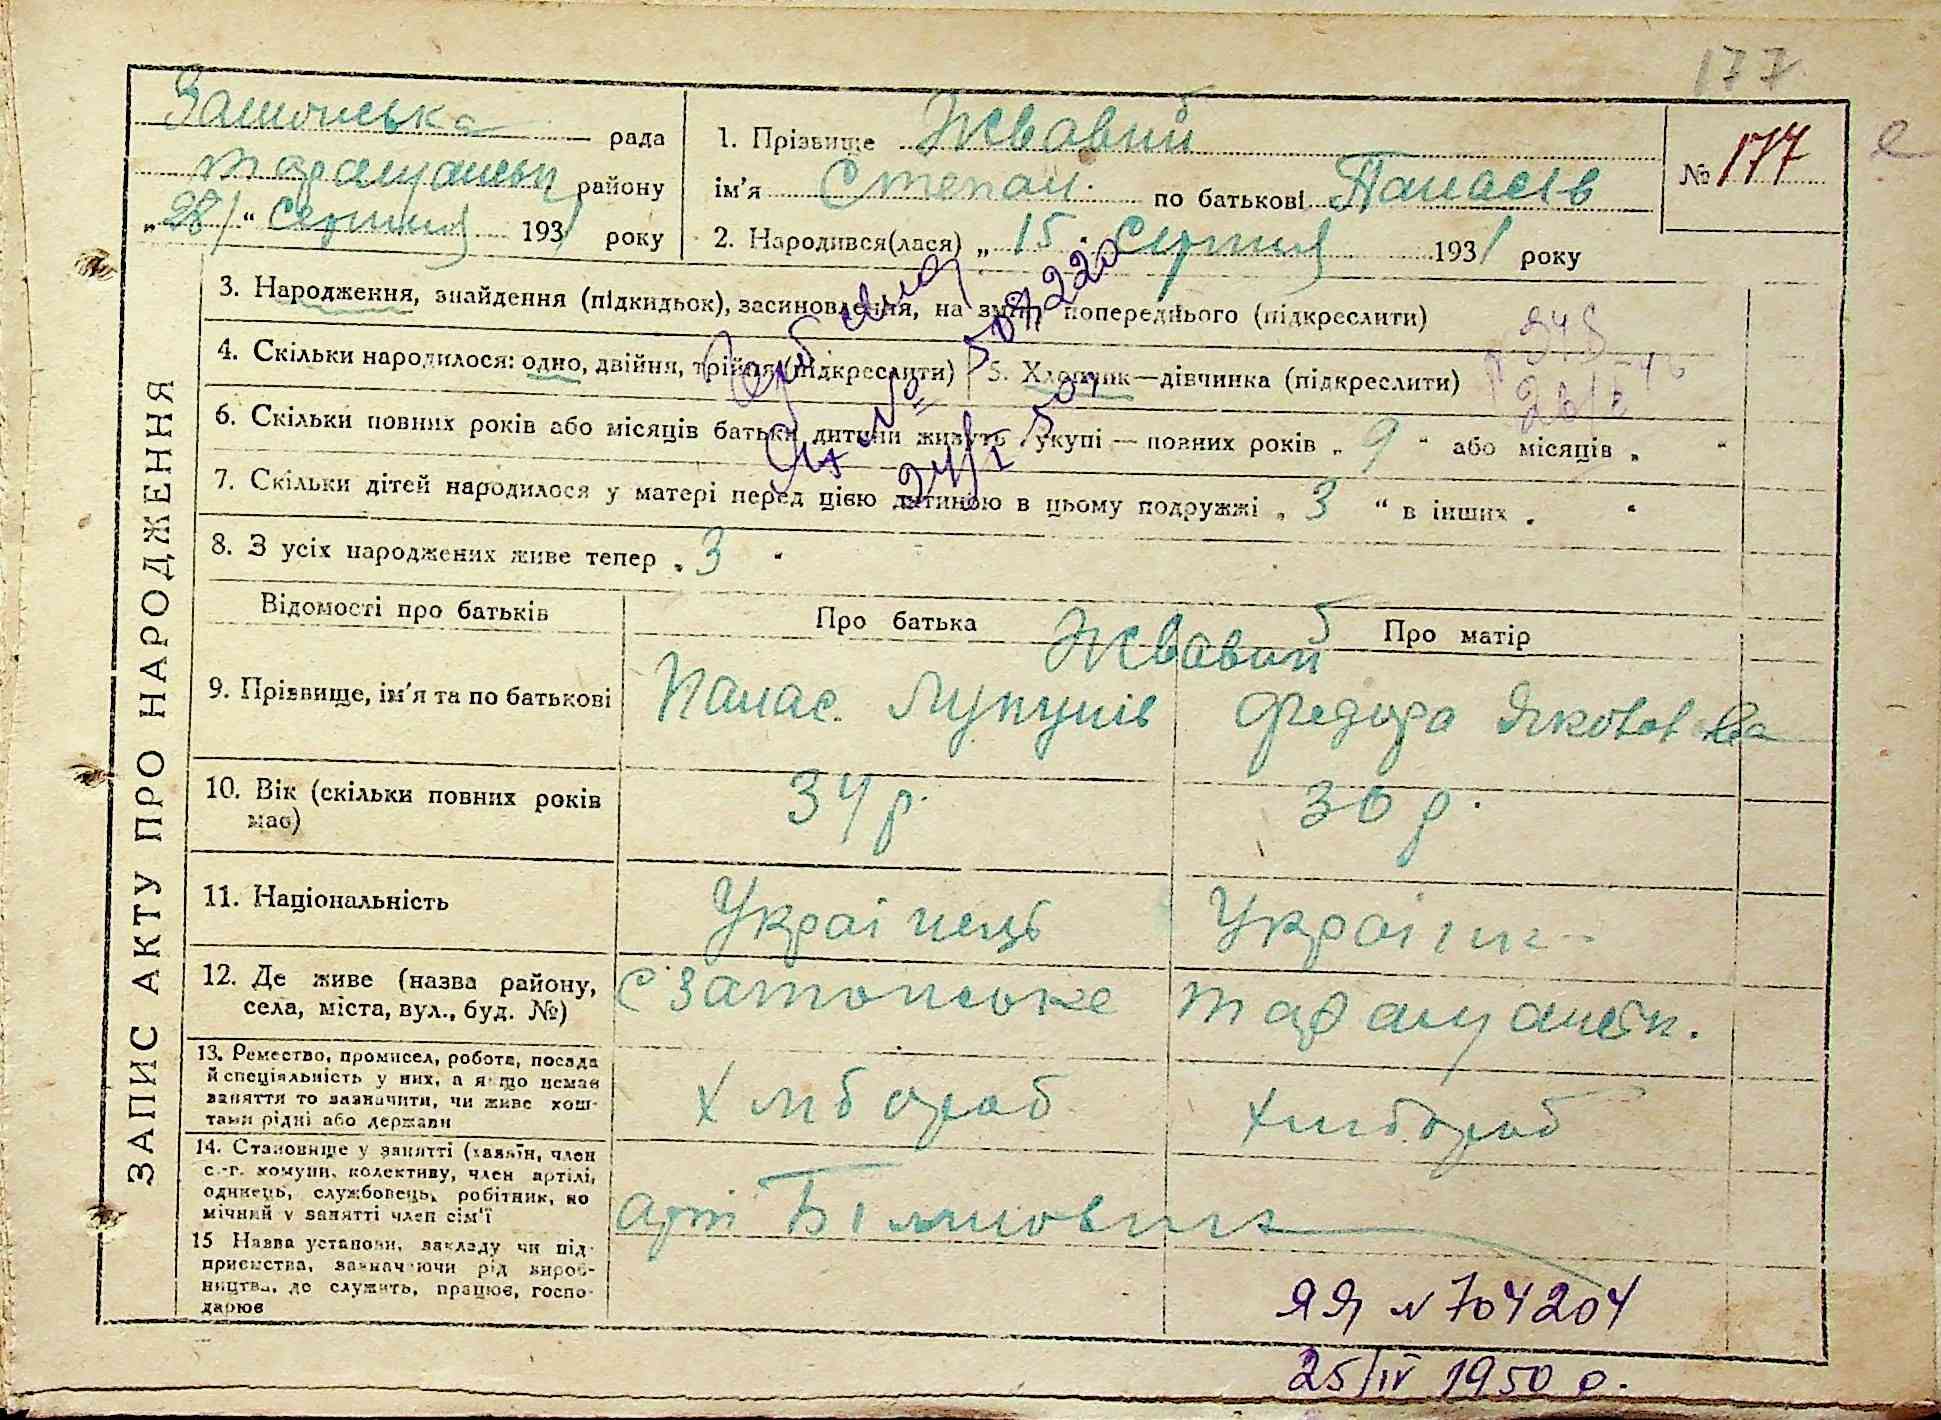 177
рада
району
„28“ серпня 1931 року
1. Прізвище Жвавий
ім'я Степан по батькові Панасів
№ 177
2. Народився(лася) „15“ серпня 1931 року
3. Народження, знайдення (підкидьок), засиновлення, на зміну попереднього (підкреслити)
4. Скільки народилося: одно, двійня, трійня (підкреслити) 5. Хлопчик—дівчинка (підкреслити)
6. Скільки повних років або місяців батьки дитини живуть укупі — повних років „ 9 “ або місяців „ “
7. Скільки дітей народилося у матері перед цією дитиною в цьому подружжі „ 3 “ в інших „ “
8. З усіх народжених живе тепер „ 3 “
ЗАПИС АКТУ ПРО НАРОДЖЕННЯ
Відомості про батьків
Про батька
Про матір
Жвавий
9. Прізвище, ім'я та по батькові
Панас
Федора Яковівна
10. Вік (скільки повних років має)
34 р.
30 р.
11. Національність
Українець
Україн
12. Де живе (назва району,
села, міста, вул., буд. №)
13. Ремество, промисел, робота, посада
й спеціяльність у них, а якщо немає
заняття то зазначити, чи живе кош-
тами рідні або держави
Хлібороб
Хлібороб
14. Становище у занятті (хазяїн, член
с.-г. комуни, колективу, член артілі,
одинець, службовець, робітник, по
мічний у занятті член сім'ї
арт
15 Назва установи, закладу чи під-
приємства, зазначаючи рід вироб-
ництва, де служить, працює, госпо-
дарює
ЯЯ № 704204
25/IV 1950 р.